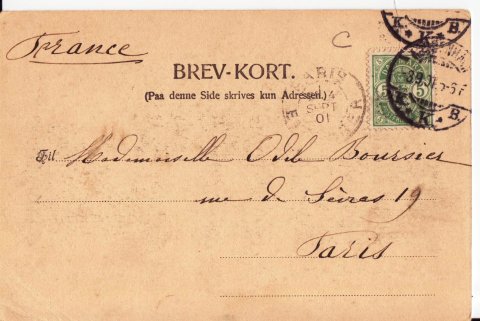 France
C
BREV-KORT.
(Paa denne Side skrives kun Adressen.)
PARIS
SEPT
01
5 5
K. K B.
K. K B.
Til Mademoiselle Odile Boursier
rue de Sèvres 19
Paris